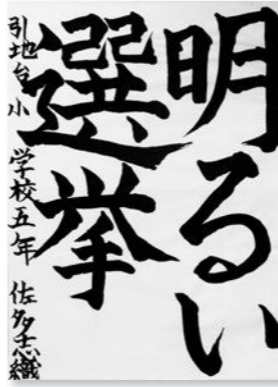 明るい
選挙
引地台小学校五年 佐多志織